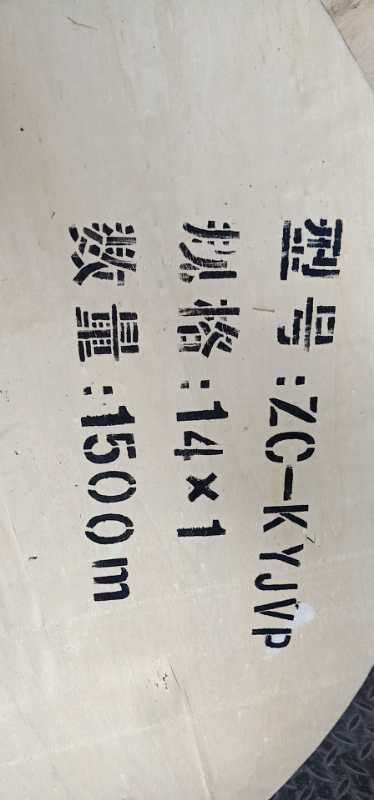 型号:ZC-KYJVP
规格:14×1
数量:1500m